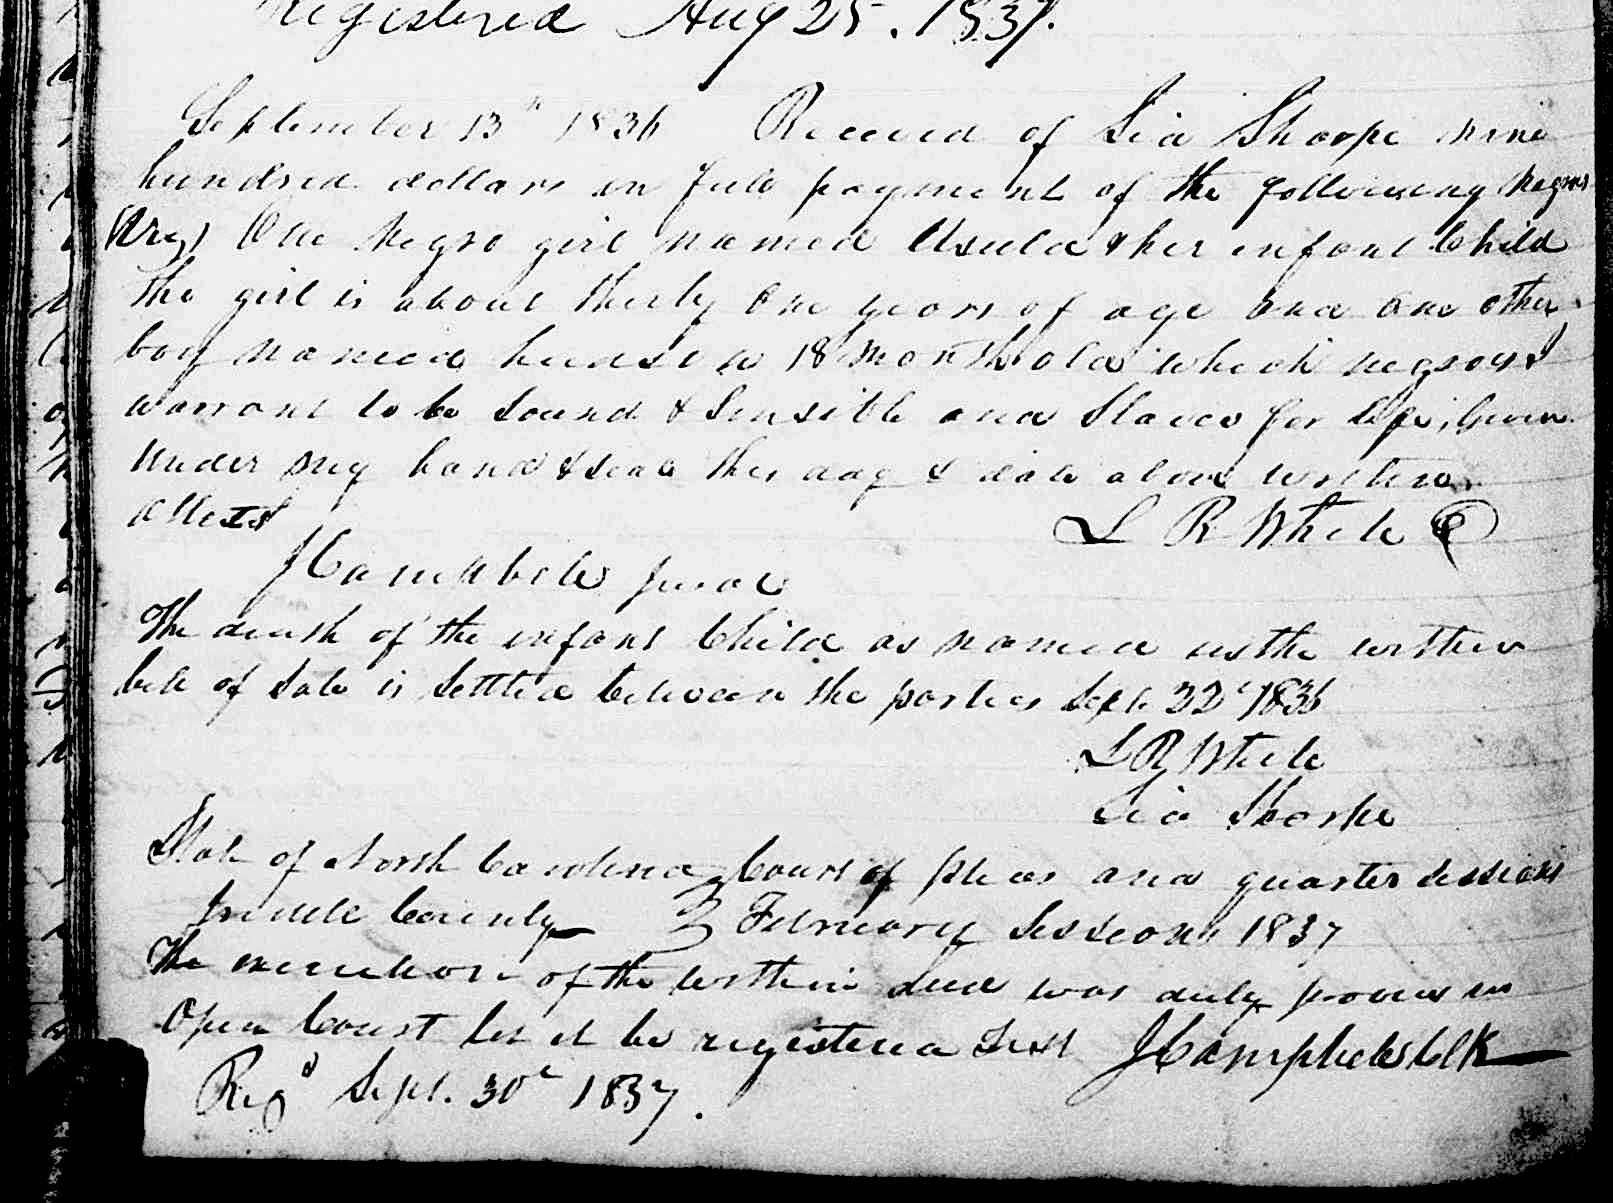 Registered Aug 25. 1837.
September 13th 1836 Received of Sia Sharpe nine
hundred dollars in full payment of the following Negroes
(Viz) One Negro girl named Usula & her infant Child
the girl is about thirty One years of age and One other
boy named 18 months old which negroes I
warrant to be Sound & Sensible and Slaves for life, Given
under my hand & seal this day & date above written
Attest
L R White
J Campbell Jurat
The death of the infant Child as named in the written
bill of Sale is Settled between the parties Sept 22d 1836
L R White
Sia Sharpe
State of North Carolina Court of pleas and quarter sessions
Iredell County } February Sessions 1837
The execution of the within deed was duly proven in
Open Court let it be registered Test J Campbell Clk
Regd Sept. 30th 1837.